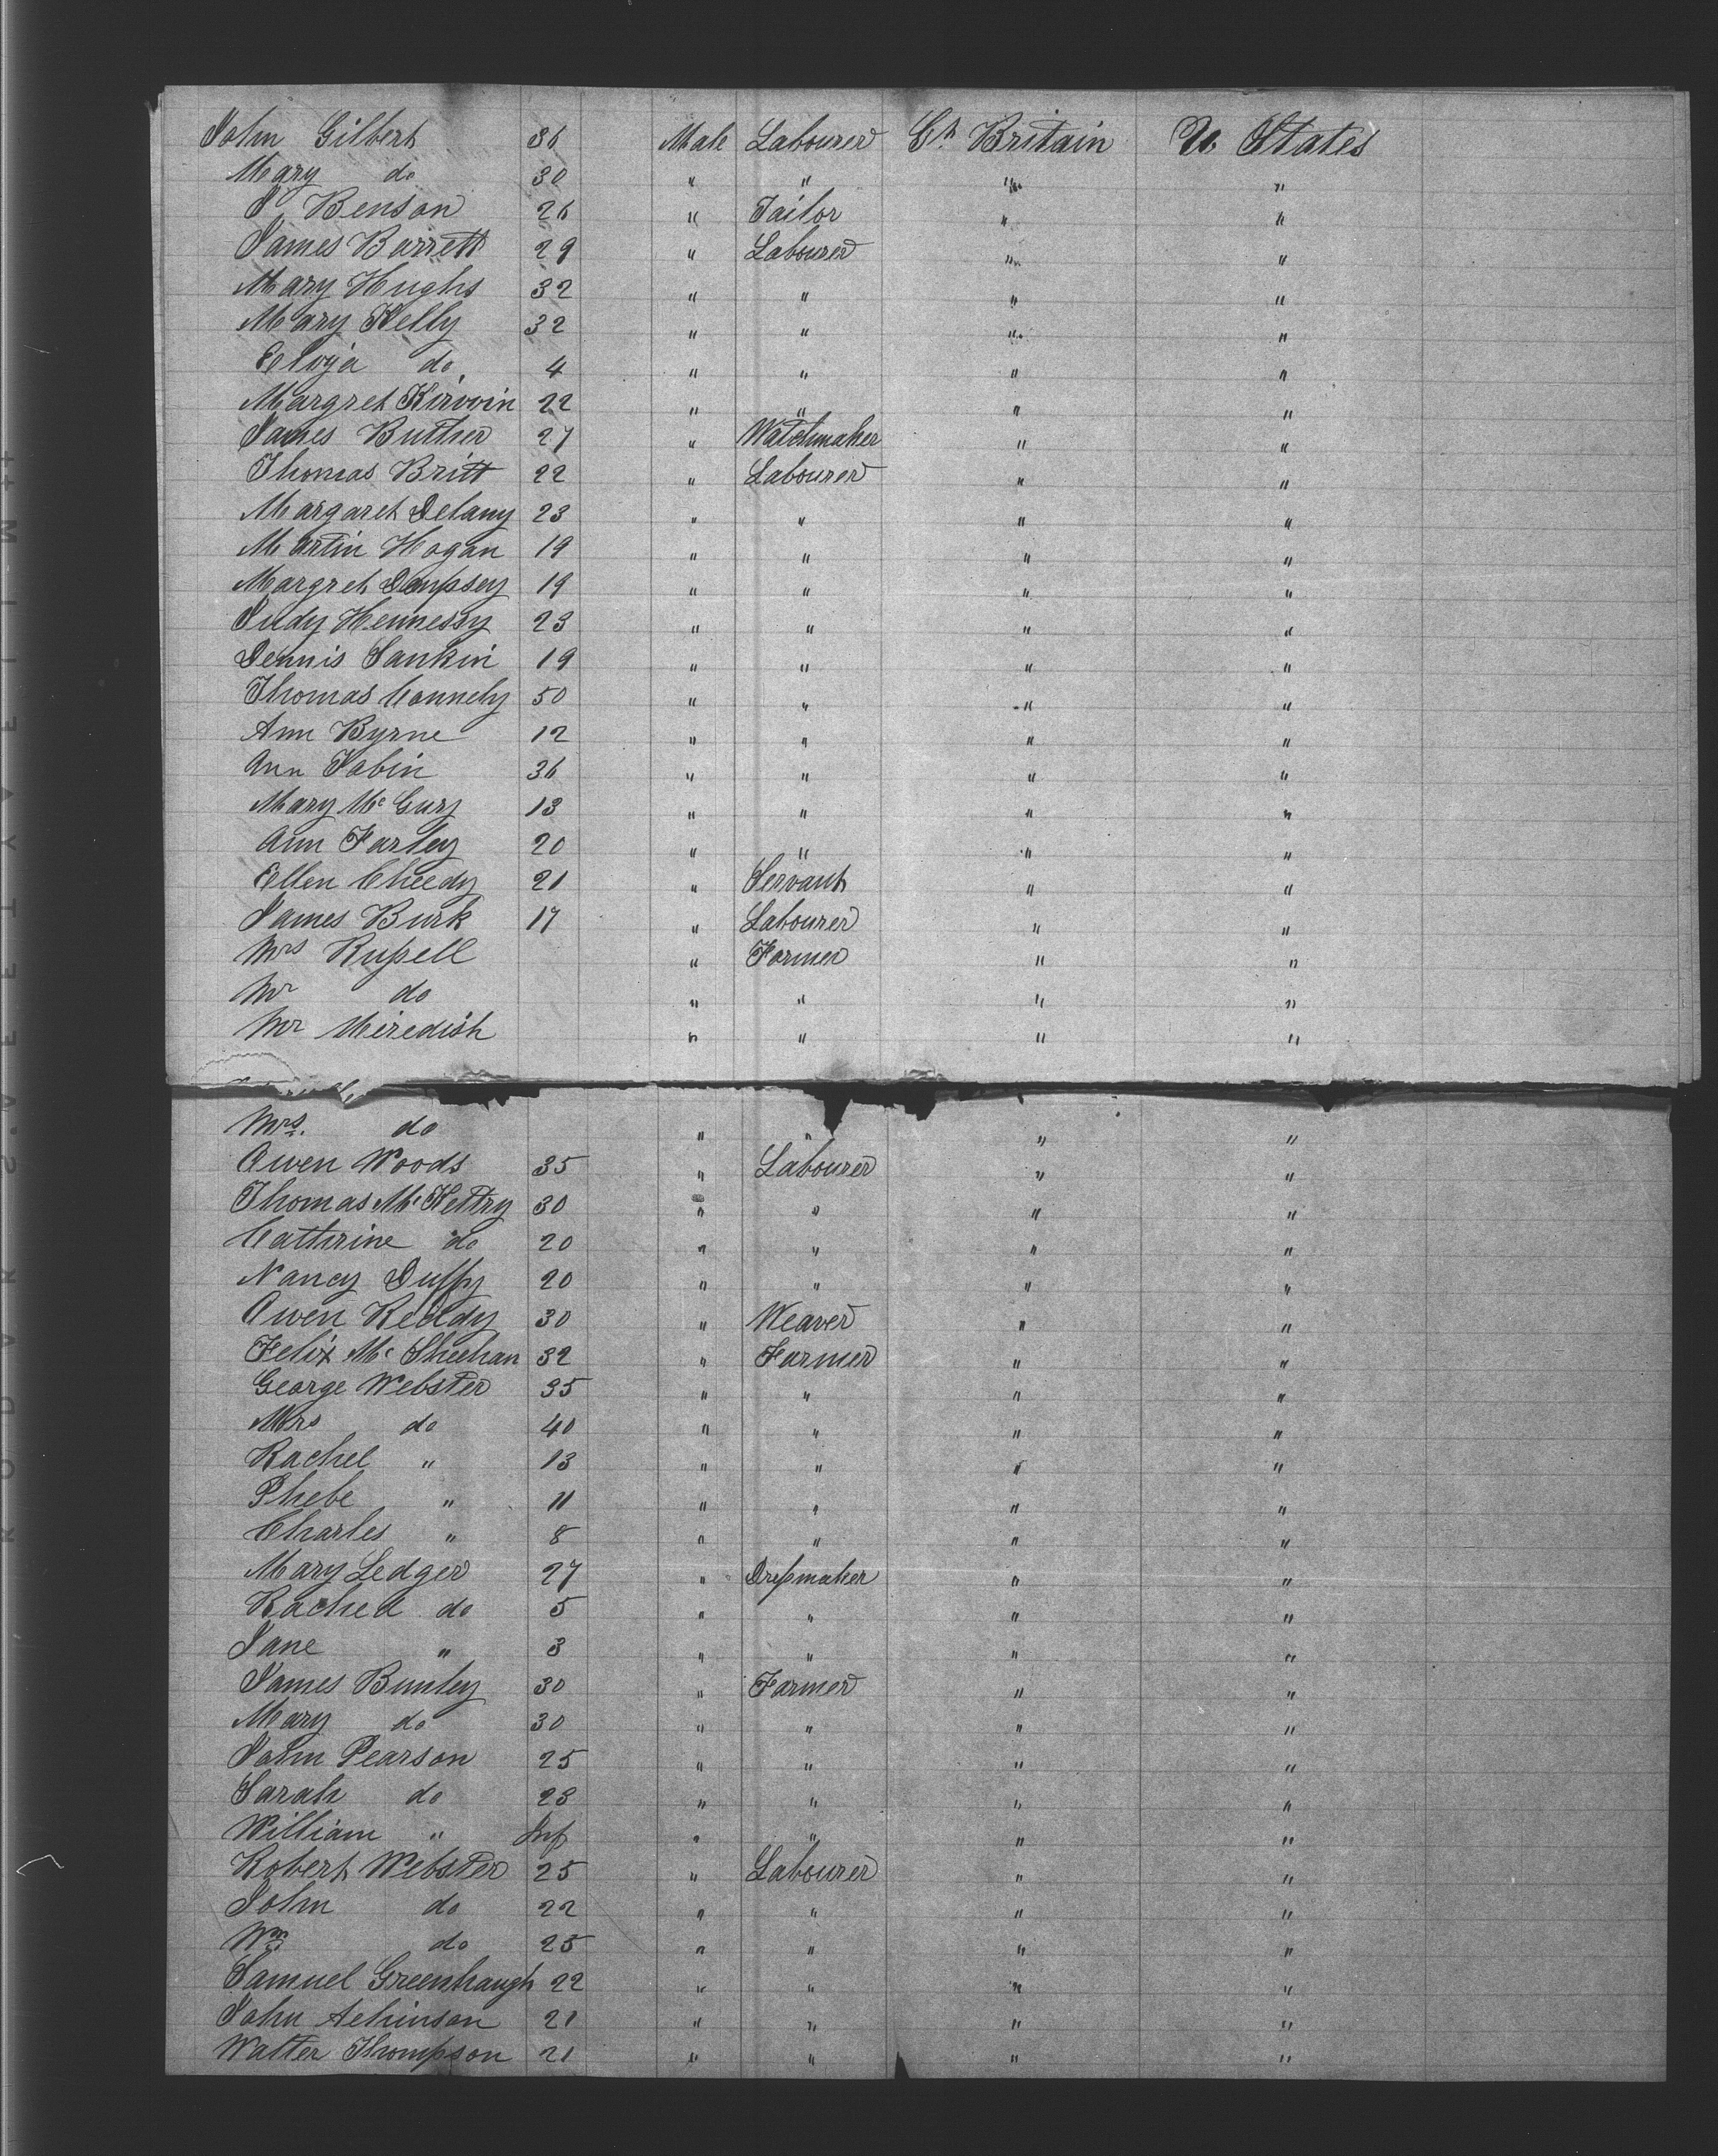 John Gilbert 36 Male Labourer Gt Britain U. States
Mary do 30 " " " "
P Benson 26 " Tailor " "
James Barrett 29 " Labourer " "
Mary Hughs 32 " " " "
Mary Kelly 32 " " " "
do 4 " " " "
Margret Kirwin 22 " " " "
James Buttner 27 " Watchmaker " "
Thomas Britt 22 " Labourer " "
Margaret Delany 23 " " " "
Martin Hogan 19 " " " "
Margret Dempsey 19 " " " "
Judy Hennessy 23 " " " "
Dennis Lankin 19 " " " "
Thomas Connely 50 " " " "
Ann Byrne 12 " " " "
Ann Tobin 36 " " " "
Mary Mc 13 " " " "
Ann Farley 20 " " " "
Ellen Cheedy 21 " Servant " "
James Burk 17 " Labourer " "
Mrs Russell " Farmer " "
Mr do " " " "
Mr Meredish " " " "
Mrs. do " " " "
Owen Woods 35 " Labourer " "
Thomas Mc Kettry 30 " " " "
Cathrine do 20 " " " "
Nancy Duffy 20 " " " "
Owen Reddy 30 " Weaver " "
Felix Mc Sheehan 32 " Farmer " "
George Webster 35 " " " "
Mrs do 40 " " " "
Rachel " 13 " " " "
Phebe " 11 " " " "
Charles " 8 " " " "
Mary Ledger 27 " Dressmaker " "
Rachel do 5 " " " "
Jane " 3 " " " "
James Bunley 30 " Farmer " "
Mary do 30 " " " "
John Pearson 25 " " " "
Sarah do 23 " " " "
William " Inf " " " "
Robert Webster 25 " Labourer " "
John do 22 " " " "
Wm do 25 " " " "
Samuel Greenhaugh 22 " " " "
John Achinson 21 " " " "
Walter Thompson 21 " " " "